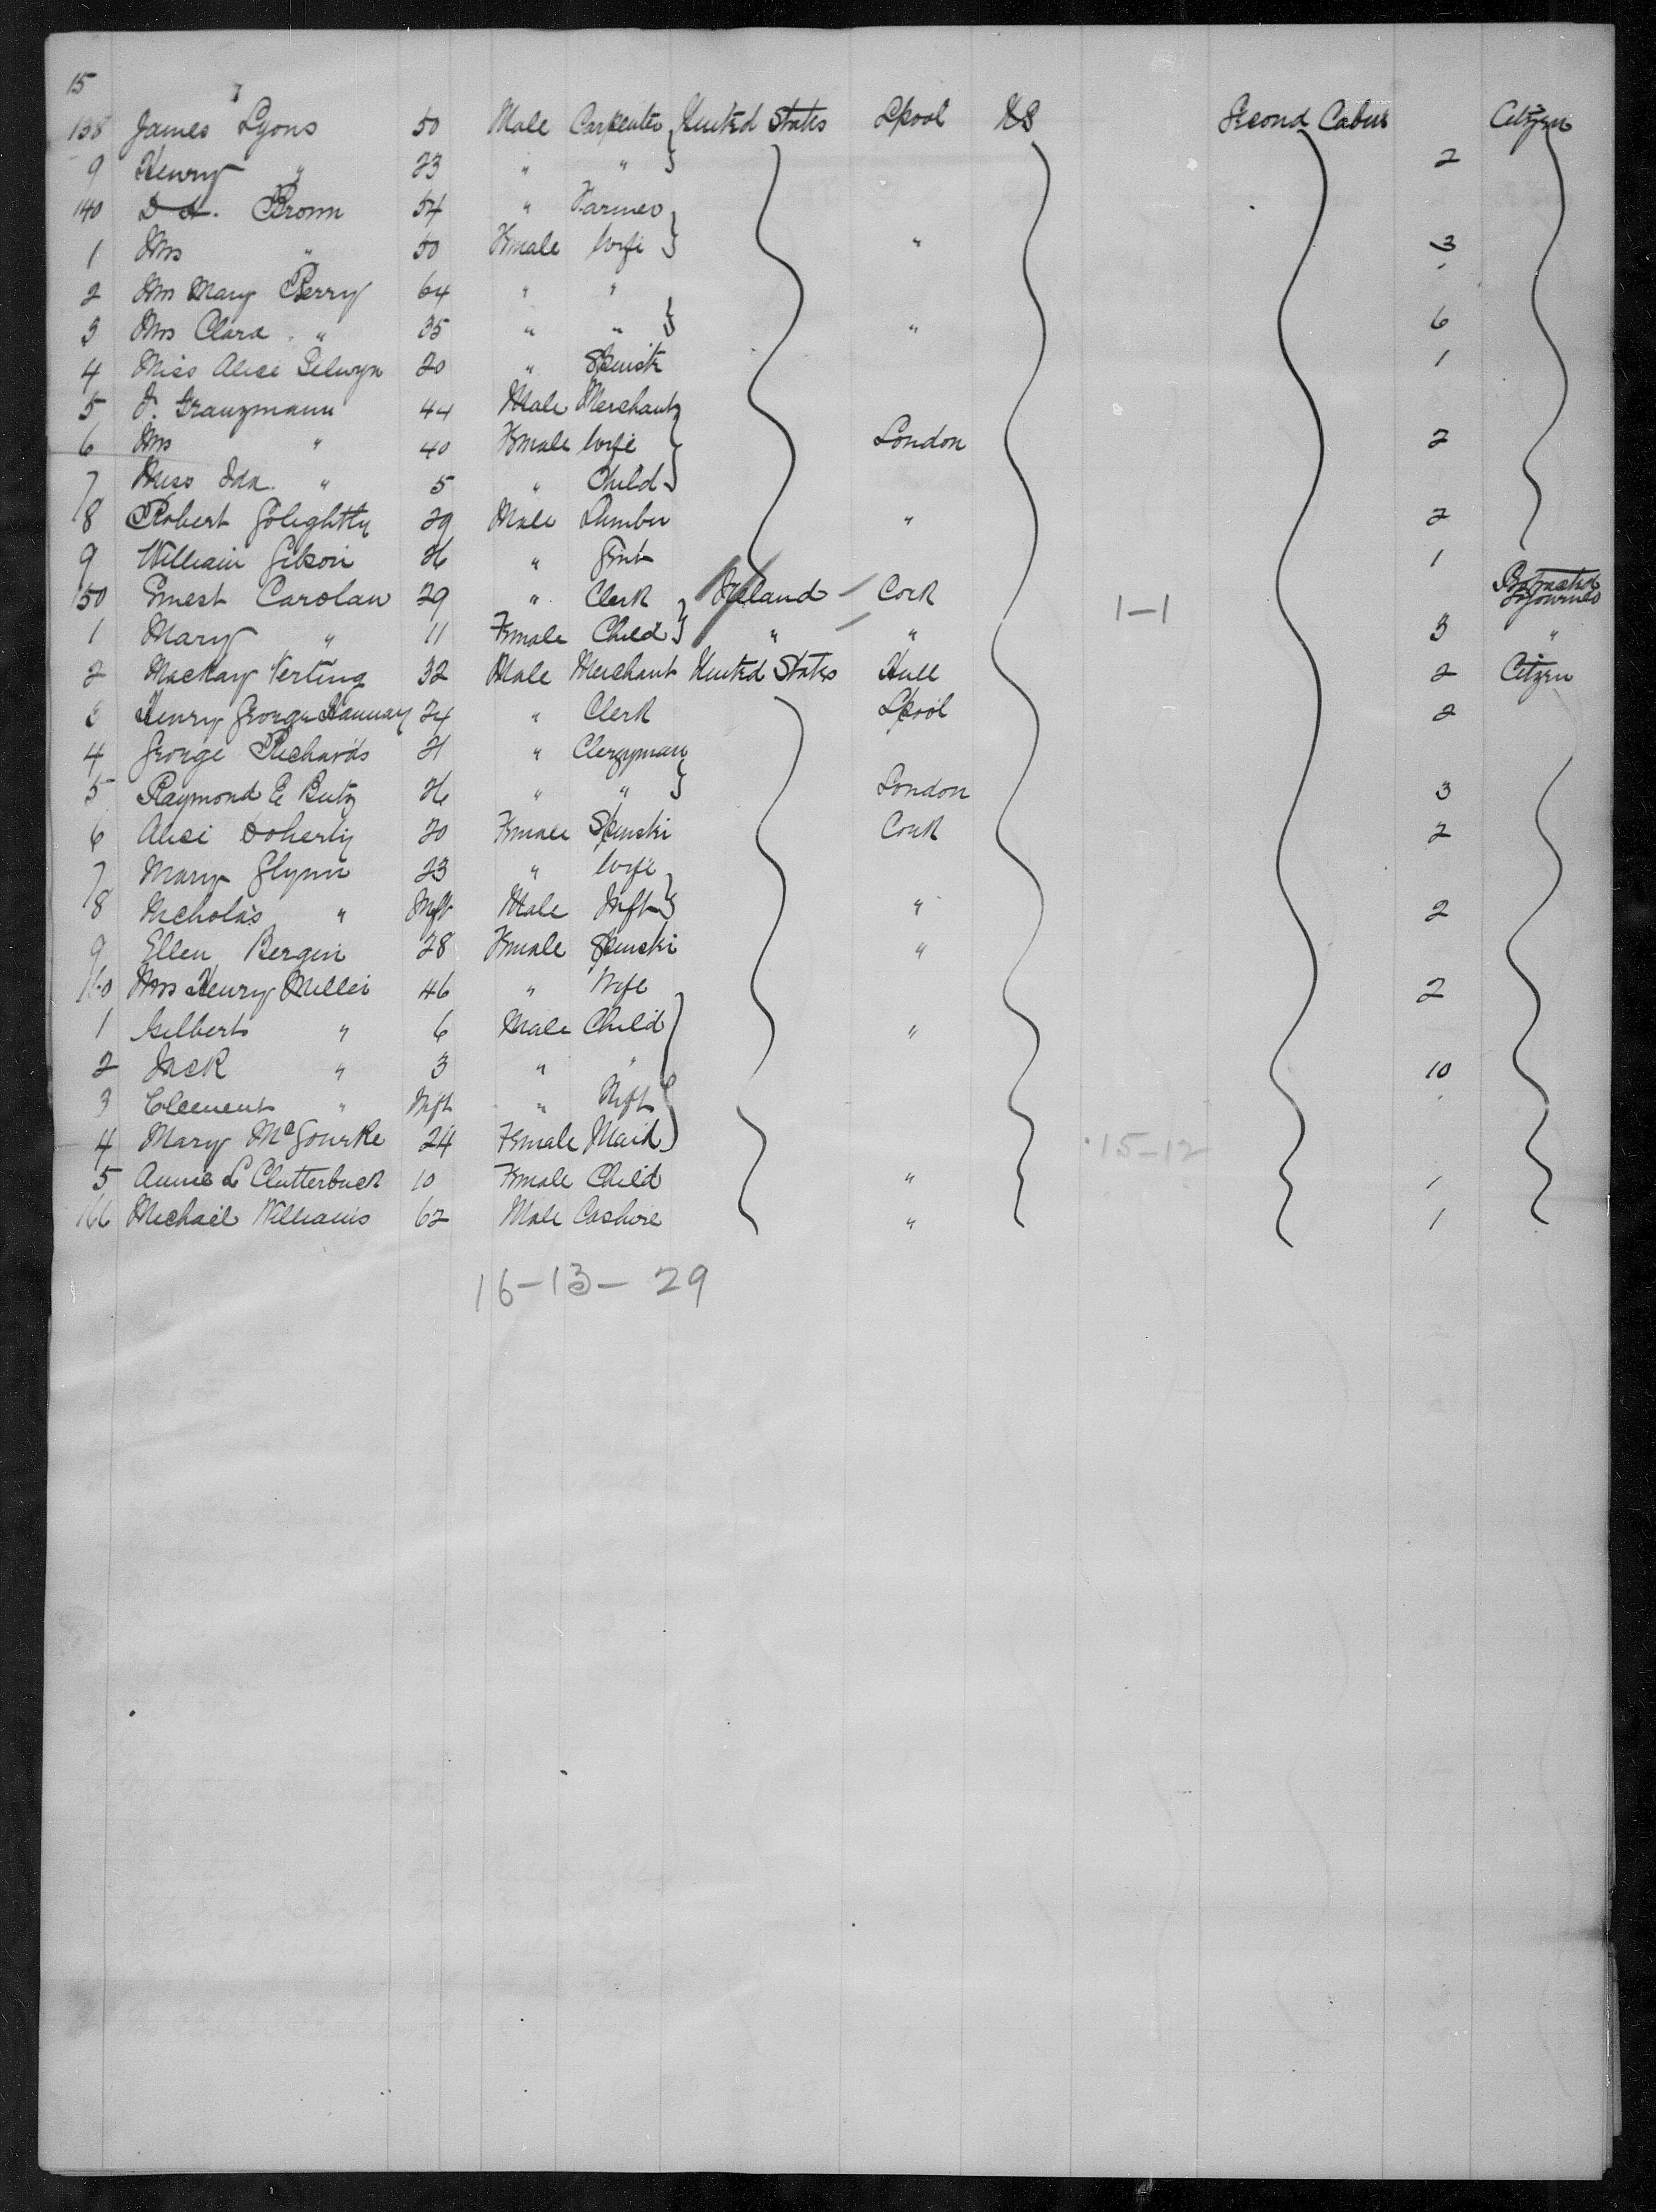 15
138 James Lyons 50 Male Carpenter United States Lpool US Second Cabin Citizen
9 Henry " 23 " " 2
140 D A. Brown 54 " Farmer
1 Mrs " 50 Female Wife " 3
2 Mrs Mary Perry 64 " "
3 Mrs Clara " 35 " " " 6
4 Miss Alice Selwyn 20 " Spinstr 1
5 F. Granzmann 44 Male Merchant
6 Mrs " 40 Female Wife London 2
7 Miss Ida " 5 " Child
8 Robert Golightly 29 Male Plumber " 2
9 William Gibson 26 " Gent 1
50 Ernest Carolan 29 " Clerk Ireland Cork 1-1 Protracted Sojourned
1 Mary " 11 Female Child " " 3 "
2 Mackay Verting 32 Male Merchant United States Hull 2 Citzen
3 Henry George Hannay 24 " Clerk Lpool 2
4 George Richards 21 " Clergyman
5 Raymond E Butz 26 " " London 3
6 Alice Doherty 20 Female Spinstr Cork 2
7 Mary Glynn 23 " Wife
8 Nicholas " Inft Male Inft " 2
9 Ellen Bergin 28 Female Spinstr "
160 Mrs Henry Miller 46 " Wife 2
1 Gilbert " 6 Male Child "
2 Jack " 3 " " 10
3 Clement " Inft " Inft
4 Mary McGourke 24 Female Maid 15-12
5 Annie L Clutterbuck 10 Female Child " 1
166 Michael Williams 62 Male Cashire " 1
16-13-29